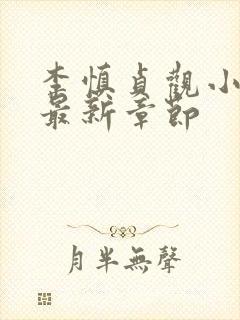 李慎貞觀小
最新章節
月半無聲